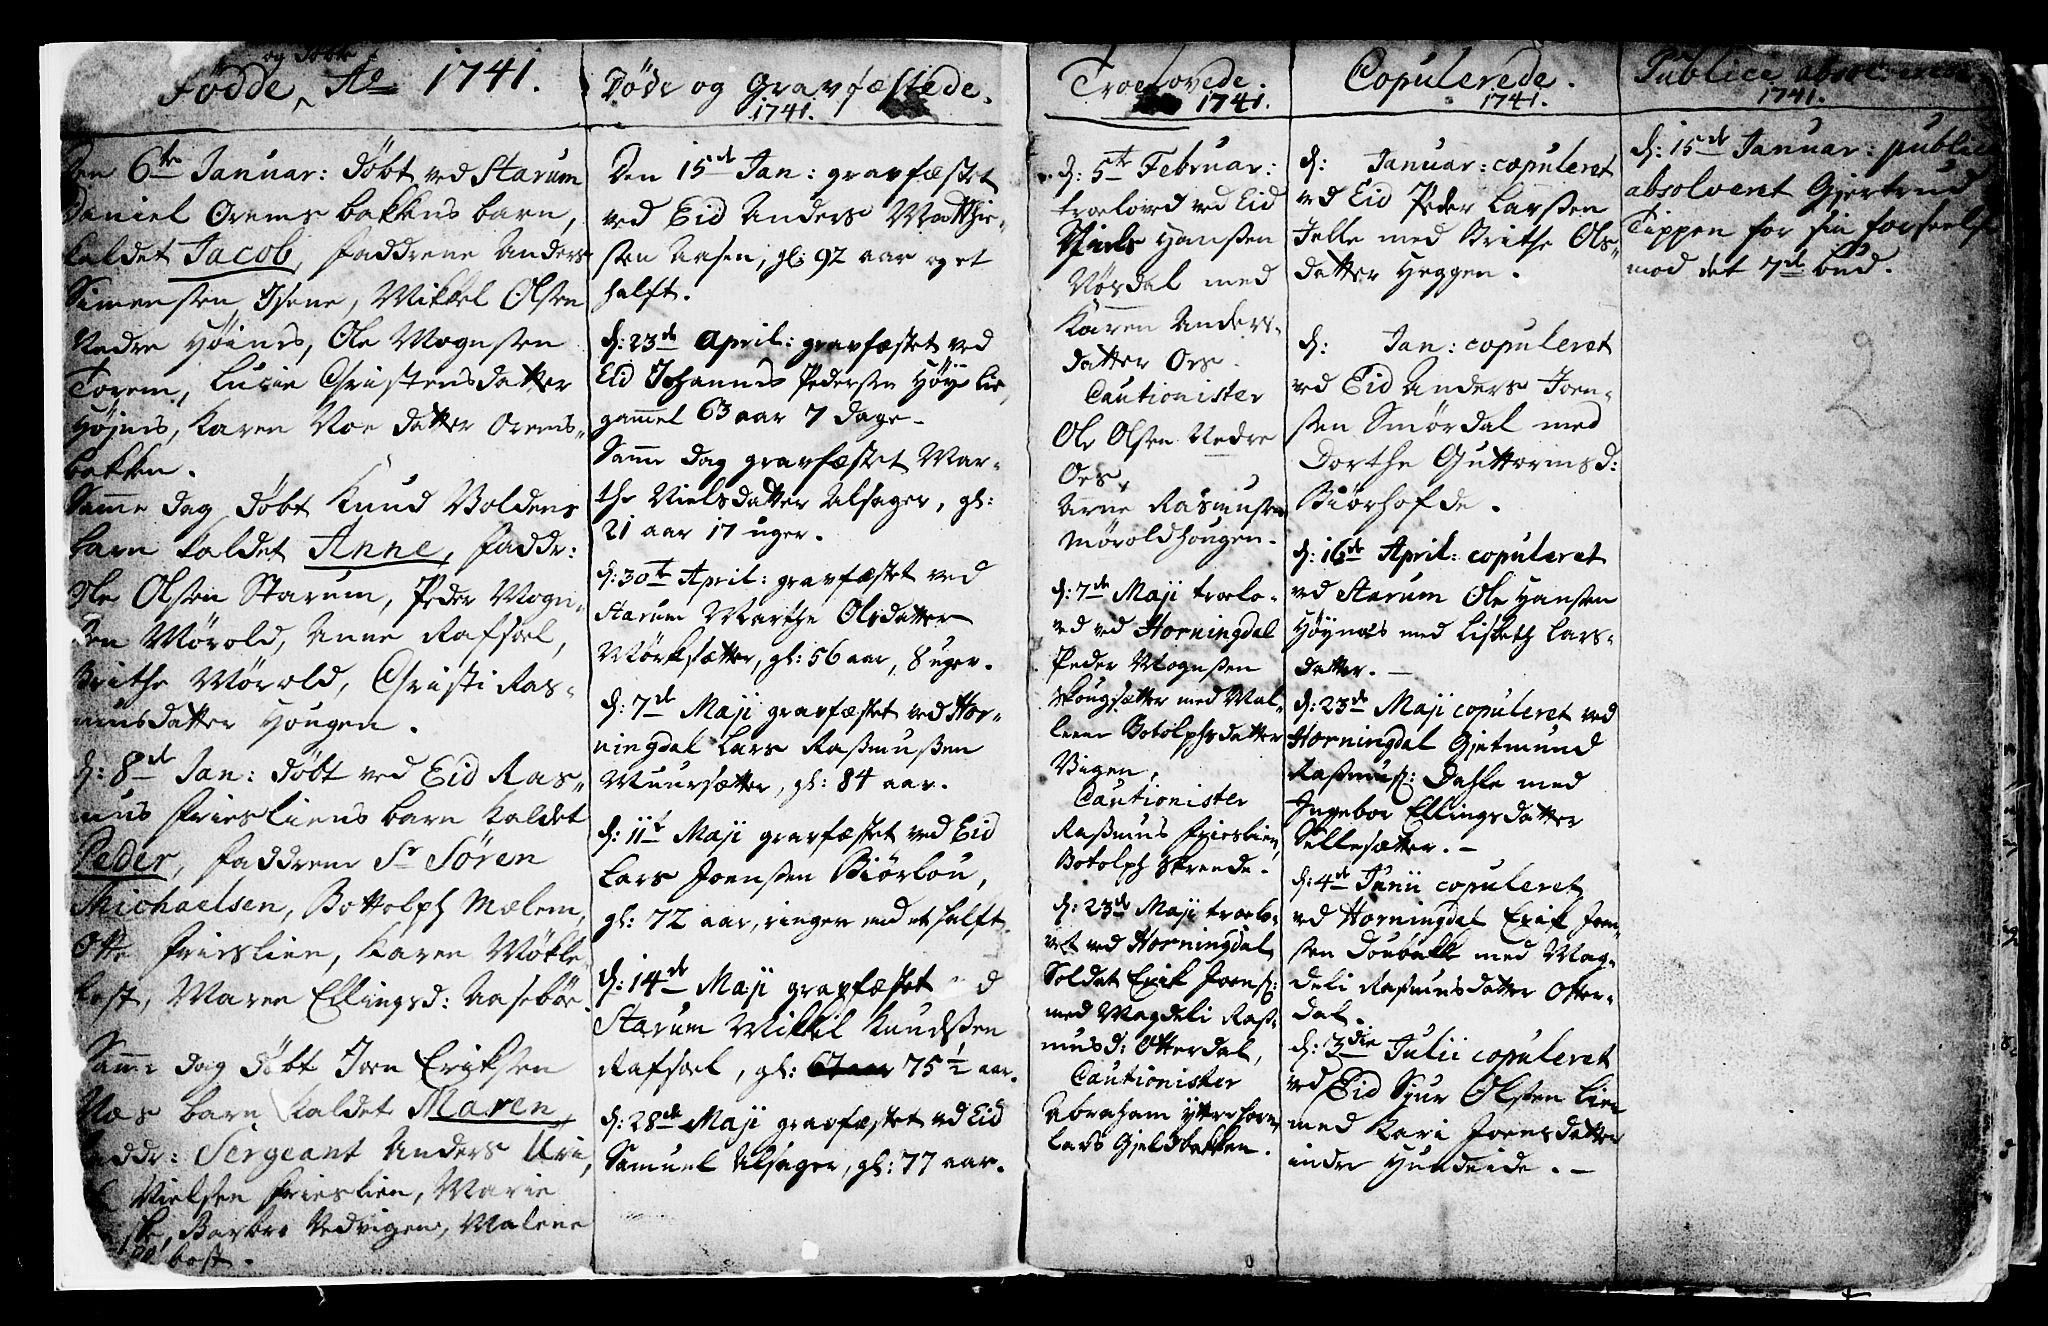 og Døbte
Fødde Ao 1741.
Den 6te Januar: døbt ved Starum
Daniel Orems bakkens barn,
kaldet Jacob, faddrene Anders
Simensen Isene, Mikkel Olsen
Nedre Høines, Ole Mognsen
Torem, Lucie Christensdatter
Højnes, Karen Roe datter Orems-
bakken.
Samme dag døbt Knud Boldens
barn kaldet Anne, faddr:
Ole Olsen Starum, Peder Mogn-
sen Mörold, Anne Rafsoel,
Brithe Mörold, Christi Ras-
musdatter Hougen.
d: 8de Jan: døbt ved Eid Ras-
mus Friesliens barn kaldet
Peder, faddrene Sr Søren
Michaelsen, Bottolph Mælem,
Otte Frieslien, Karen Mökle-
bost, Maren Ellingsd: Aasebøe.
Samme dag døbt Joen Eriksen
Nos barn kaldet Maren,
faddr: Sergeant Anders Uri,
Nielsen Frieslien, Marie
Barbro Nedvigen, Malene
bost.
Døde og Gravfæstede.
1741.
Den 15de Jan: gravfæstet
ved Eid Anders Matthie-
sen Aasen, gl: 92 aar og et
halft.
d: 23de April: gravfæstet ved
Eid Johannes Pedersen Høyelie,
gammel 63 aar 7 dage.
Samme dag gravfæstet Mar-
the Nielsdatter Alsager, gl:
21 aar 17 uger.
d: 30te April: gravfæstet ved
Starum Marthe Olsdatter
Mörksætter, gl: 56 aar, 8 uger.
d: 7de Maji gravfæstet ved Hor-
ningdal Lars Rasmussen
Muursætter, gl: 84 aar.
d: 11te Maji gravfæstet ved Eid
Lars Joenssen Biörlou,
gl: 72 aar, ringer end et halft.
d: 14de Maji gravfæstet ved
Starum Mikkel Knudssen
Rafsoel, gl: 67 aar 75 ½ aar.
d: 28de Maji gravfæstet ved Eid
Samuel Alsager, gl: 77 aar.
Troelovede.
1741.
d: 5te Februar:
troelovd ved Eid
Niels Hanssen
Nosdal med
Karen Anders-
datter Oes.
Cautionister
Ole Olsen Nedre
Oes,
Arne Rasmusen
Möroldhougen.
d: 7de Maji troelo-
ved ved Horningdal
Peder Mognssen
Skougsætter med Mal-
lene Botolphsdatter
Vigen,
Cautionister
Rasmus Frieslien,
Botolph Skreede.
d: 23de Maji troelo-
vet ved Horningdal
Soldat Erik Joens:
med Magdeli Ras-
musd: Otterdal,
Cautionister
Abraham Yttrehorn,
Lars Gjeldsbakken.
Copulerede.
1741.
d: Januar: copuleret
ved Eid Peder Larssen
Felle med Brithe Ols-
datter Heggen.
d: Jan: copuleret
ved Eid Anders Joen-
sen Smördal med
Dorthe Guttormsd:
Biörhofde.
d: 16de April: copuleret
ved Starum Ole Hanssen
Høynes med Lisbeth Lars-
datter.
d: 23de Maji copuleret ved
Horningdal Gjetmund
Rasmus: Dahle med
Ingebor Ellingsdatter
Sellesætter.
d: 4de Junii copuleret
ved Horningdal Erik Joen-
sen Doubakke med Mag-
deli Rasmusdatter Otter-
dal.
d: 3die Julii copuleret
ved Eid Sjur Olssen Lien
med Kari Joensdatter
indre Hundeide.
Publice absol
1741.
d: 15de Januar: public
absolveret Gjertrud
Tippen for sin forseelse
mod det 7de bud.
2